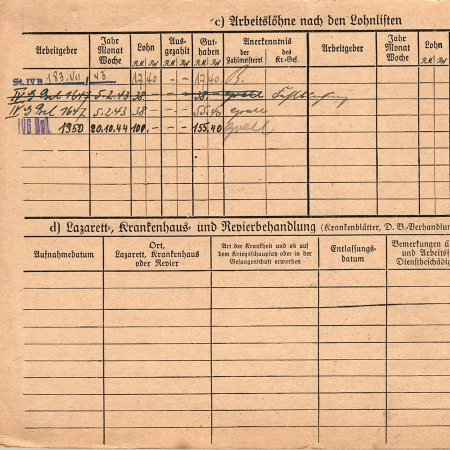 c) Arbeitslöhne nach den Lohnlisten
Arbeitgeber Jahr Monat Woche Lohn Aus-gezahlt Gut-haben Anerkenntnis der Zahlmeisterei des Kr.-Gef. Arbeitgeber Jahr Monat Woche Lohn
R.M. Rpf R.M. Rpf R.M. Rpf R.M. Rpf
St. IV B 183. VII. 43. 17 40 - - 17 40 B.
1647 5.2.43 38 - - - 38.-
1647 5.2.43 38 - - - 55.40
1950 20.10.44 100.- - - 155.40
d) Lazarett-, Krankenhaus- und Revierbehandlung (Krankenblätter, D. B.-Verhandlun
Aufnahmedatum Ort, Lazarett, Krankenhaus oder Revier Art der Krankheit und ob auf dem Kriegsschauplatz oder in der Gefangenschaft erworben Entlassungs-datum Bemerkungen ü und Arbeitsf Dienstbeschädig